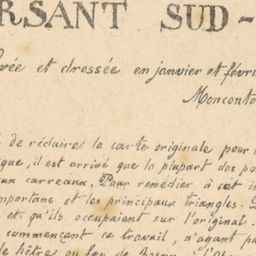 RSANT SUD-
vée et dressée en janvier et févri
Moncont
de réduire la carte originale pour
que, il est arrivé que la plupart des po
aux carreaux. Pour remédier à cet i
mportane et les principaux triangles.
et qu'ils occupaient sur l'original.
commençant ce travail, n'ayant pa
de hêtre ou